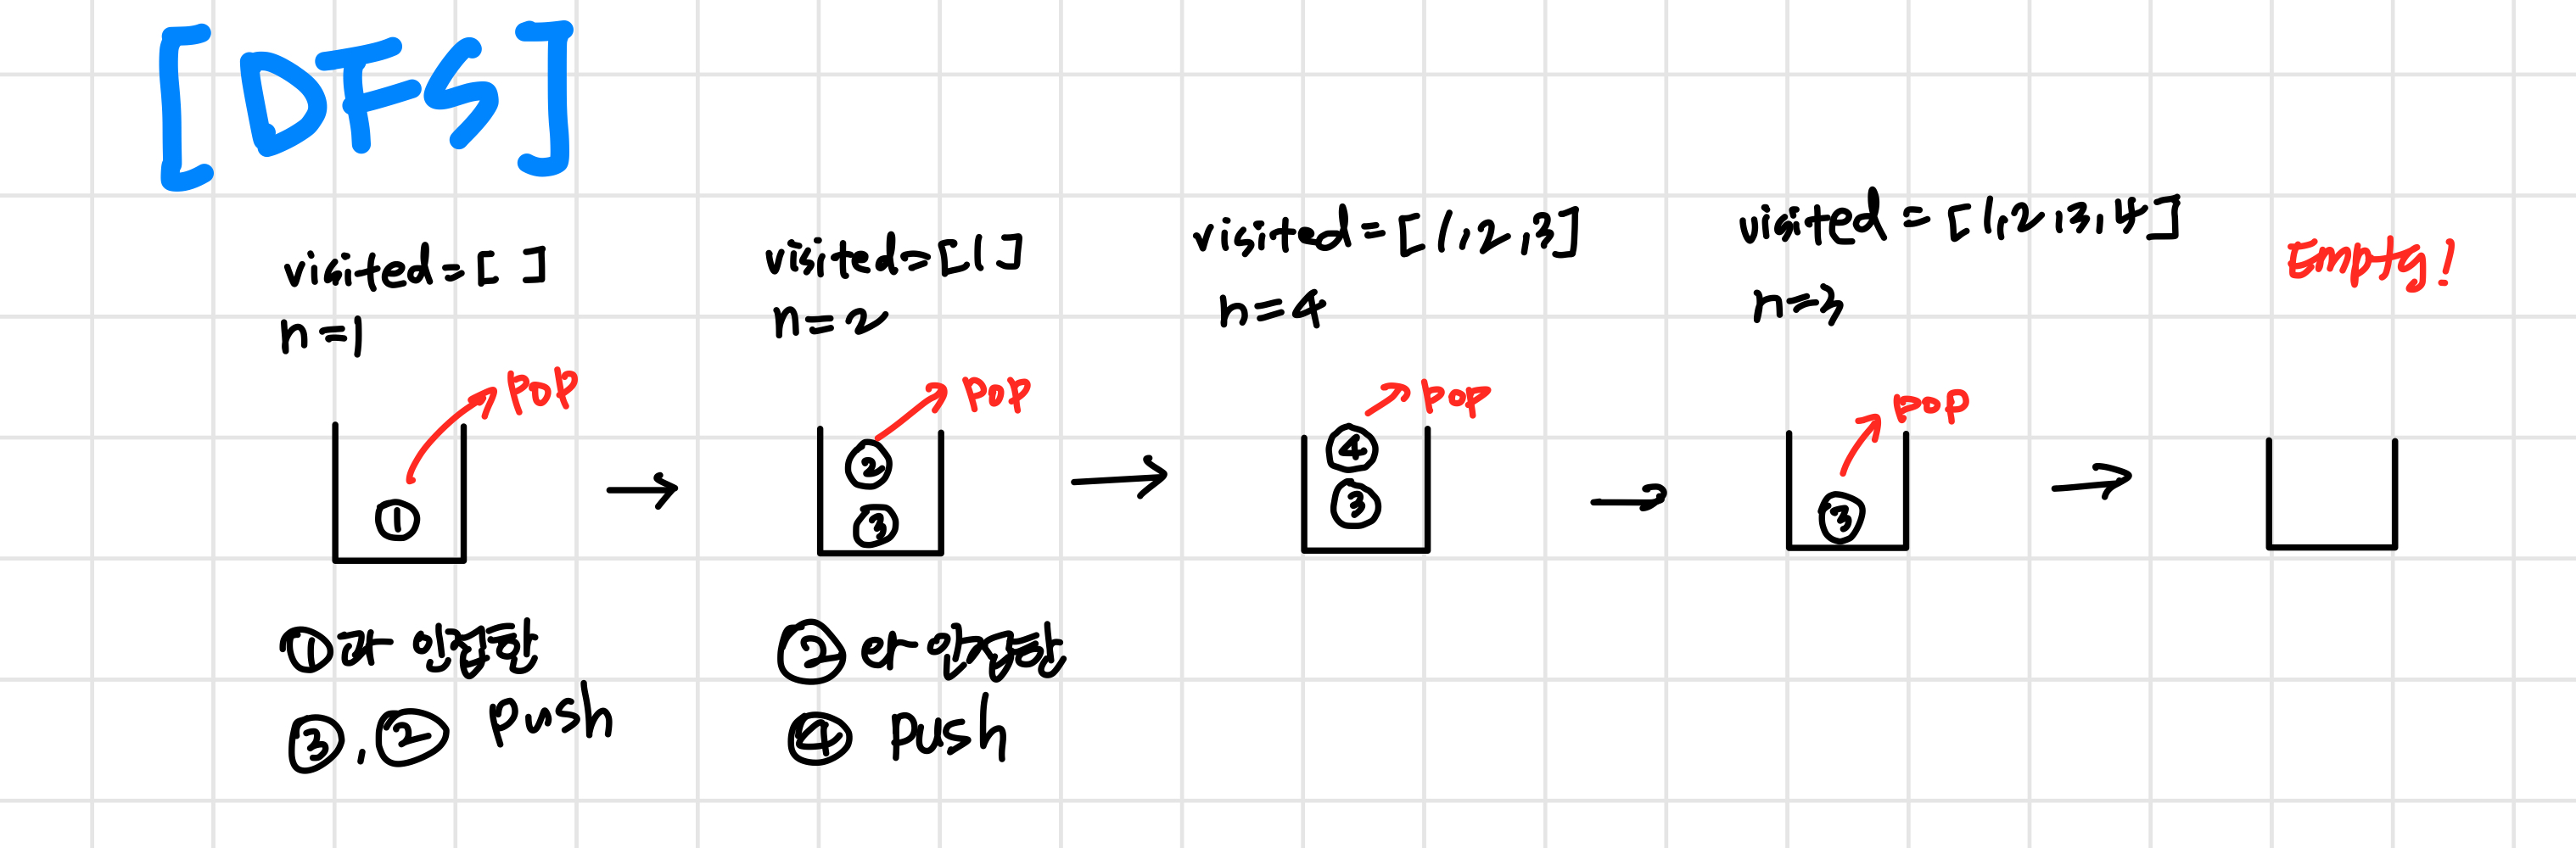 [DFS]
visited=[ ]
n=1
pop
①
①과 인접한
③, ② push
visited=[1]
n=2
pop
②
③
②와 인접한
④ push
visited=[1,2,3]
n=4
pop
④
③
visited=[1,2,3,4]
n=3
pop
③
Empty!